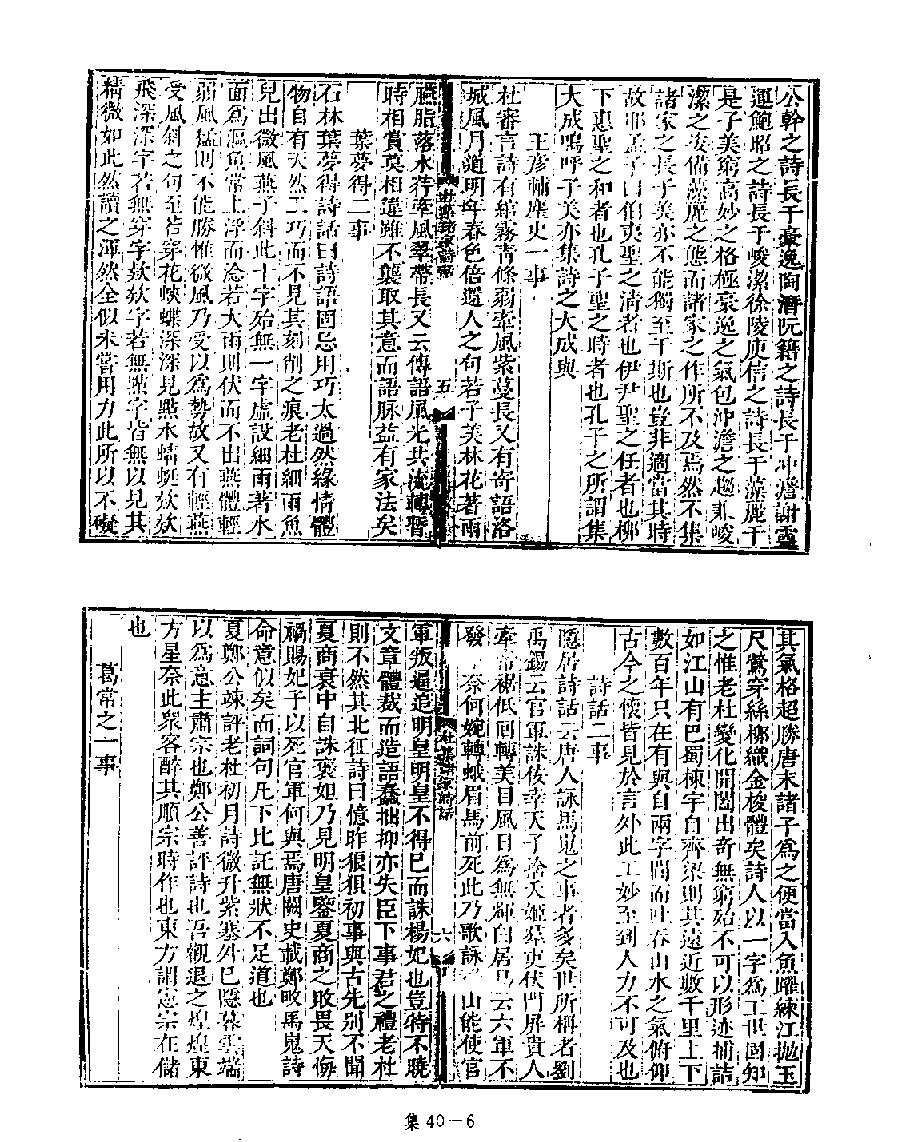 公幹之詩長于豪逸陶潛阮籍之詩長于冲澹謝靈
運鮑照之詩長于峻潔徐陵庾信之詩長于藻麗于
是子美窮高妙之格極豪逸之氣包冲澹之趣兼峻
潔之姿備藻麗之態而諸家之作所不及焉然不集
諸家之長子美亦不能獨至于斯也豈非適當其時
故耶孟子曰伯夷聖之清者也伊尹聖之任者也柳
下惠聖之和者也孔子聖之時者也孔子之所謂集
大成嗚呼子美亦集詩之大成與
王彥輔麈史一事
杜審言詩有綰霧青條弱牽風紫蔓長又有寄語洛
城風月道明年春色倍還人之句若子美林花著雨
五
臙脂落水荇牽風翠帶長又云傳語風光共流轉暫
時相賞莫相違雖不襲取其意而語脉益有家法矣
葉夢得二事
石林葉夢得詩話曰詩語固忌用巧太過然緣情體
物自有天然工巧而不見其刻削之痕老杜細雨魚
兒出微風燕子斜此十字殆無一字虛設細雨著水
面為漚魚常上浮而淰若大雨則伏而不出燕體輕
弱風猛則不能勝惟微風乃受以為勢故又有輕燕
受風斜之句至若穿花蛺蝶深深見點水蜻蜓欵欵
飛深深字若無穿字欵欵字若無點字皆無以見其
精微如此然讀之渾然全似未嘗用力此所以不礙
其氣格超勝唐末諸子為之便當入魚躍練江拋玉
尺鶯穿絲柳織金梭體矣詩人以一字為工世固知
之惟老杜變化開闔出奇無窮殆不可以形迹捕詰
如江山有巴蜀棟宇自齊梁則其遠近數千里上下
數百年只在有與自兩字間而吐吞山水之氣俯仰
古今之懷皆見於言外此工妙至到人力不可及也
詩話二事
隱居詩話云唐人詠馬嵬之事者多矣世所稱者劉
禹錫云官軍誅佞幸天子捨夭姬羣吏伏門屏貴人
牽帝裾低回轉美目風日為無輝白居易云六軍不
發 奈何婉轉蛾眉馬前死此乃歌詠 山能使官
六
軍叛逼迫明皇明皇不得已而誅楊妃也豈特不曉
文章體裁而造語蠢拙抑亦失臣下事君之禮老杜
則不然其北征詩曰憶昨狼狽初事與古先別不聞
夏商衰中自誅褒妲乃見明皇鑒夏商之敗畏天悔
禍賜妃子以死官軍何與焉唐闕史載鄭畋馬嵬詩
命意似矣而詞句凡下比託無狀不足道也
夏鄭公竦評老杜初月詩微升紫塞外已隱暮雲端
以為意主肅宗也鄭公善評詩也吾觀退之煌煌東
方星奈此衆客醉其順宗時作也東方謂憲宗在儲
也
葛常之一事
集 40－6